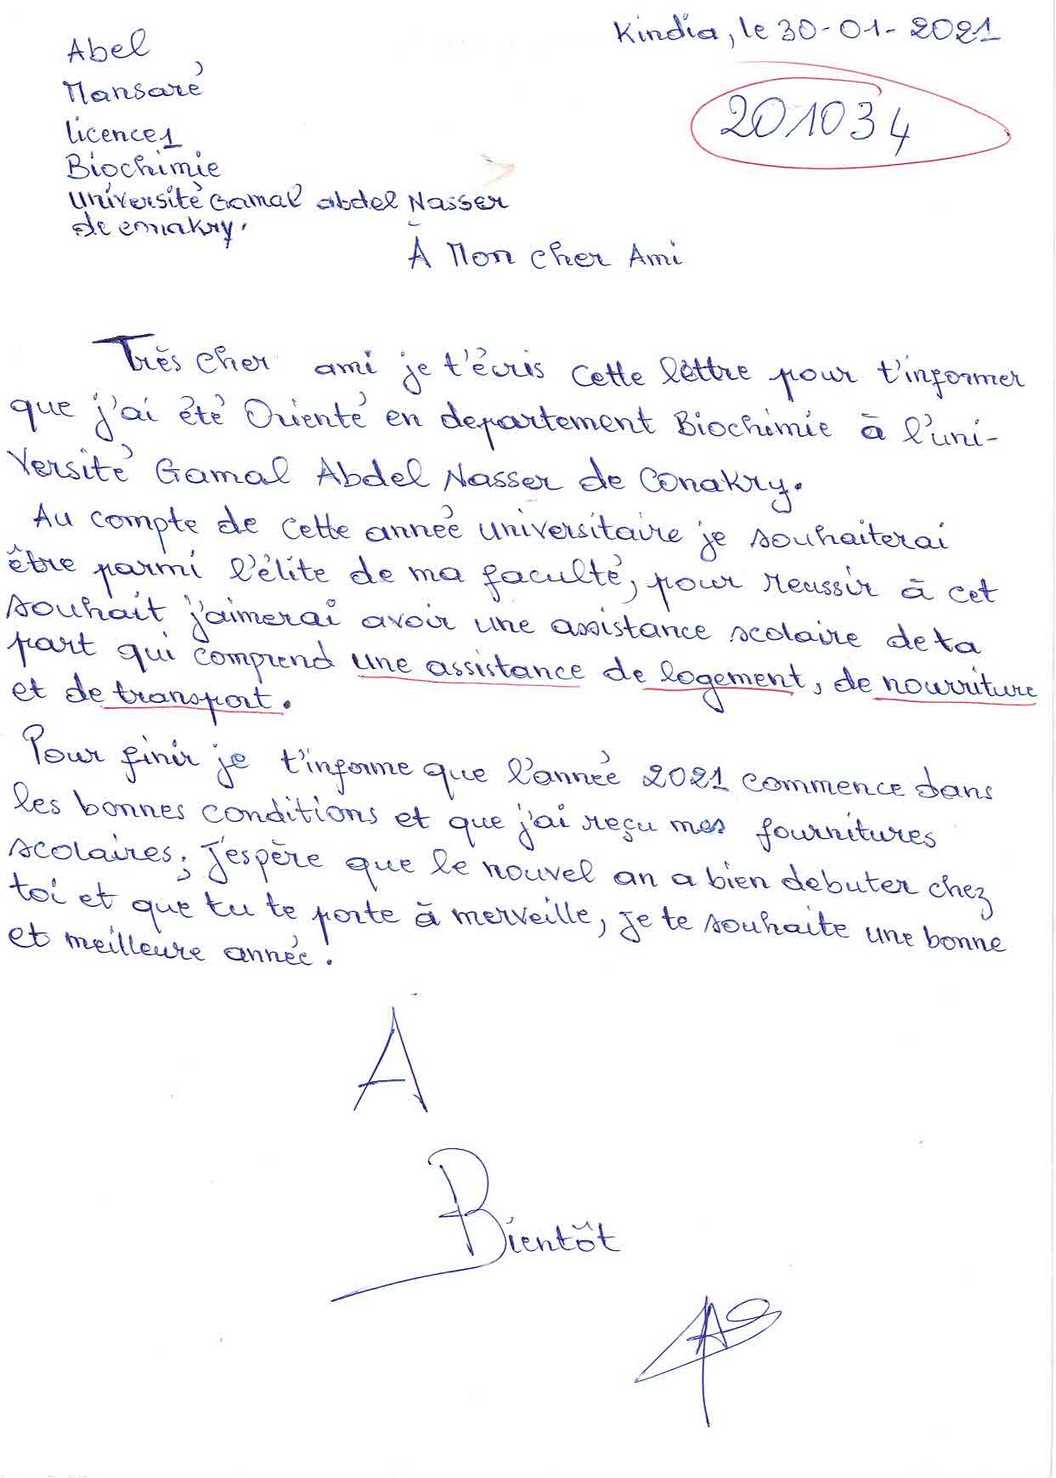 Kindia, le 30-01-2021
Abel
Mansaré
licence1
Biochimie
201034
Université Gamal abdel Nasser
de conakry.
À Mon cher Ami
Très cher ami je t'écris cette lettre pour t'informer
que j'ai été Orienté en departement Biochimie à l'uni-
versité Gamal Abdel Nasser de Conakry.
Au compte de cette année universitaire je souhaiterai
être parmi l'élite de ma faculté, pour reussir à cet
souhait j'aimerai avoir une assistance scolaire de ta
part qui comprend une assistance de logement, de nourriture
et de transport.
Pour finir je t'informe que l'année 2021 commence dans
les bonnes conditions et que j'ai reçu mes fournitures
scolaires; J'espère que le nouvel an a bien debuter chez
toi et que tu te porte à merveille, je te souhaite une bonne
et meilleure année.
A
Bientôt